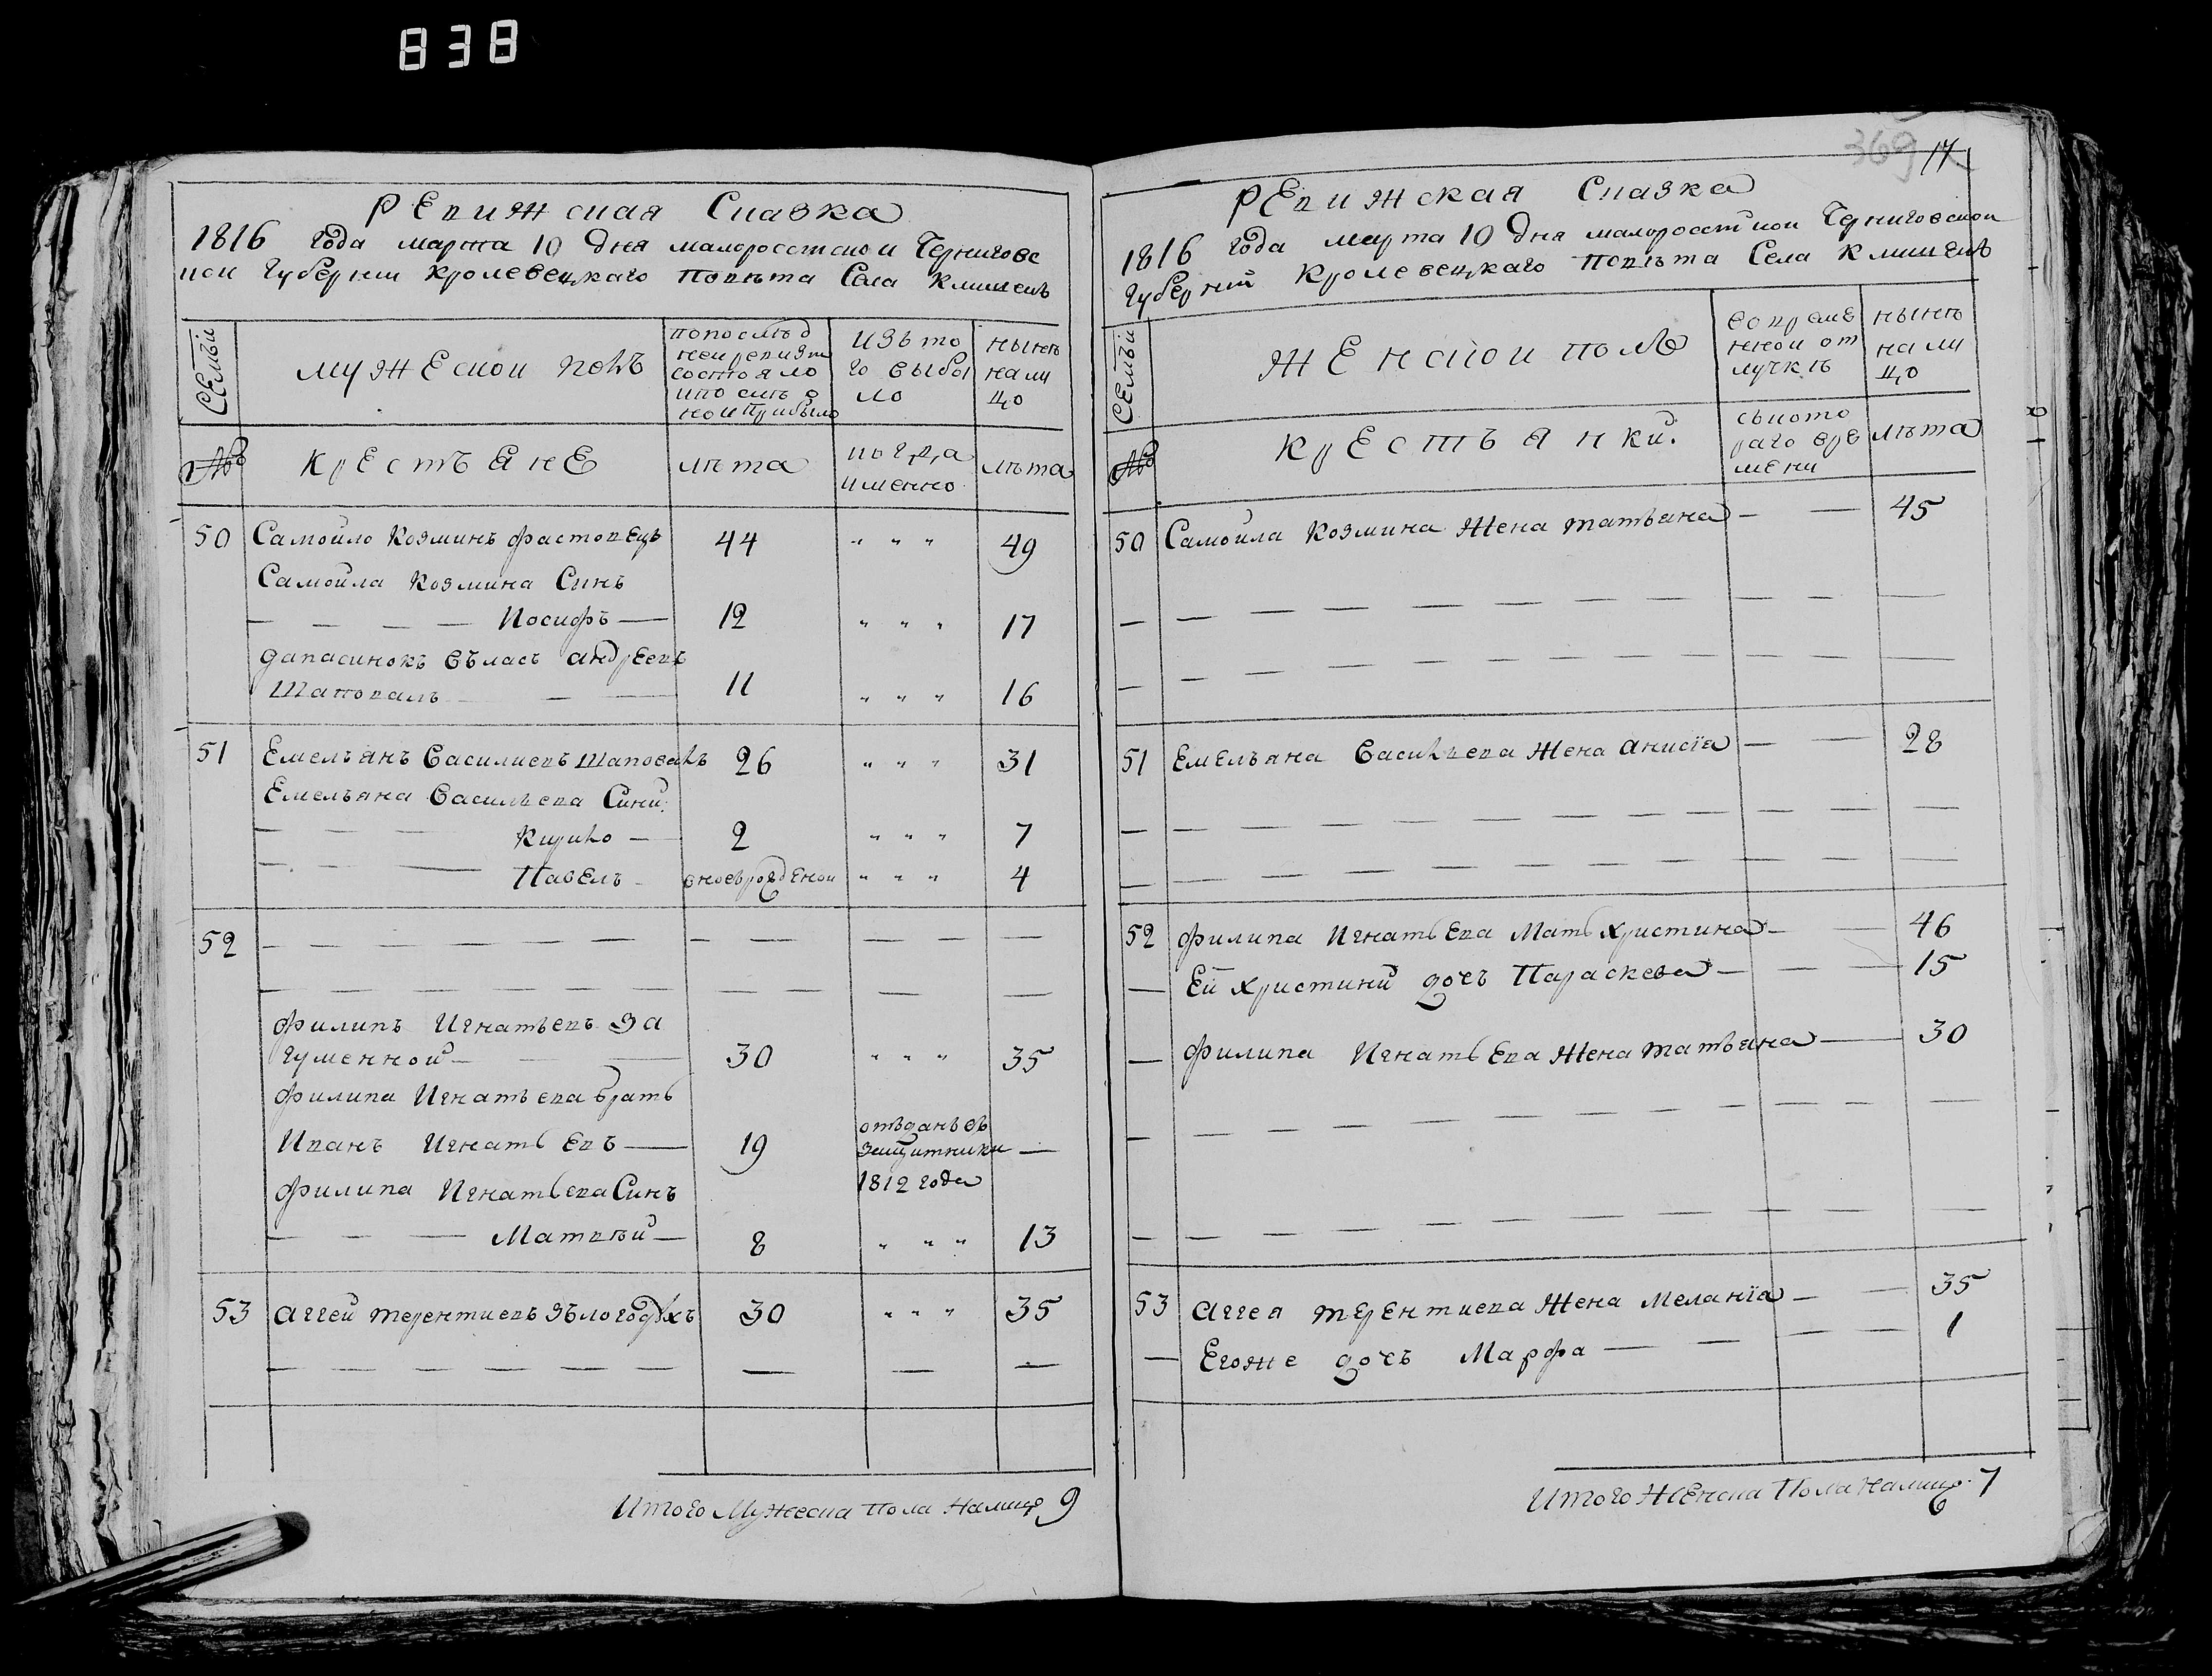 838
369 17
РЕвижская Сказка
1816 года марта 10 дня малоросстской Черниговс
кой Губернии Кролевецкаго Повѣта Села Клишекъ
СЕмъи
мужЕской полъ
попослѣд
ней ревизи
состояло
ипослѣ о
ной прибыло
изъ то
го выбы
ло
нынѣ
нали
цо
№
крЕстъянЕ
лѣта
когда
именно
лѣта
50 Самойло Козминъ Фастовецъ 44 " " " 49
Самойла Козмина Синъ
— — — — Иосифъ — 12 " " " 17
дапасинокъ Влась андреевъ
Шаповалъ — — 11 " " " 16
51 Емельянъ Василиевъ Шаповалъ 26 " " " 31
Емельяна Васильева Сини:
— — — Кирило — 2 " " " 7
— — — Павелъ — вновърожденой " " " 4
52 — — — — — — — — — — — —
— — — — — — — — — — — —
Филипъ Игнатьевъ За
гуменной — — — 30 " " " 35
Филипа Игнатьева братъ
Иванъ Игнатьевъ — 19 отъданъ въ
защитники —
1812 года
Филипа Игнатьева Синъ
— — — Матвѣй — 8 " " " 13
53 аггей терентиевъ Зълогодухъ 30 " " " 35
— — — — — — — — —
Итого Мужеска пола налицо 9
РЕвижская Сказка
1816 года марта 10 дня малоросстской Черниговской
Губернии Кролевецкаго Повѣта Села Клишекъ
СЕмъи
жЕнской полъ
вовреме
нной от
лучкѣ
нынѣ
нали
цо
№
крЕстъянки.
съкото
раго вре
мени
лѣта
50 Самойла Козмина Жена татьяна — — 45
— — — — — — — — — — —
— — — — — — — — — — —
51 Емельяна Васильева Жена анисїя — — 28
— — — — — — — — — — —
— — — — — — — — — — —
52 Филипа Игнатьева Мать христина — — 46
— Ей христини дочъ Параскева — — — 15
— Филипа Игнатьева Жена татьяна — 30
— — — — — — — — — — —
— — — — — — — — — — —
53 аггея терентиева Жена Меланїя — — 35
— Егоже дочъ Марфа — — — — 1
Итого Женска Пола налицо 7